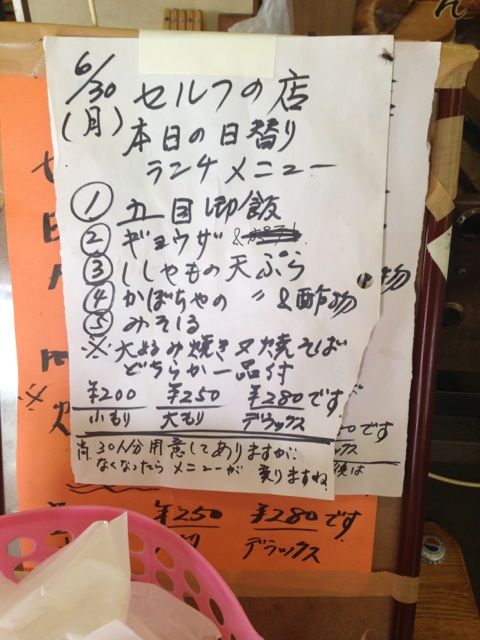 6/30
(月)
セルフの店
本日の日替り
ランチメニュー
① 五目御飯
② ギョウザ &
③ ししゃもの天ぷら
④ かぼちゃの 〃 &酢物
⑤ みそ汁
※ 大好み焼き又焼そば
どちらか一品付
¥200 ¥250 ¥280です
小もり 大もり デラックス
尚 30人分用意してありますが、
なくなったらメニューが変りますね。
物
です
¥250 ¥280です
デラックス